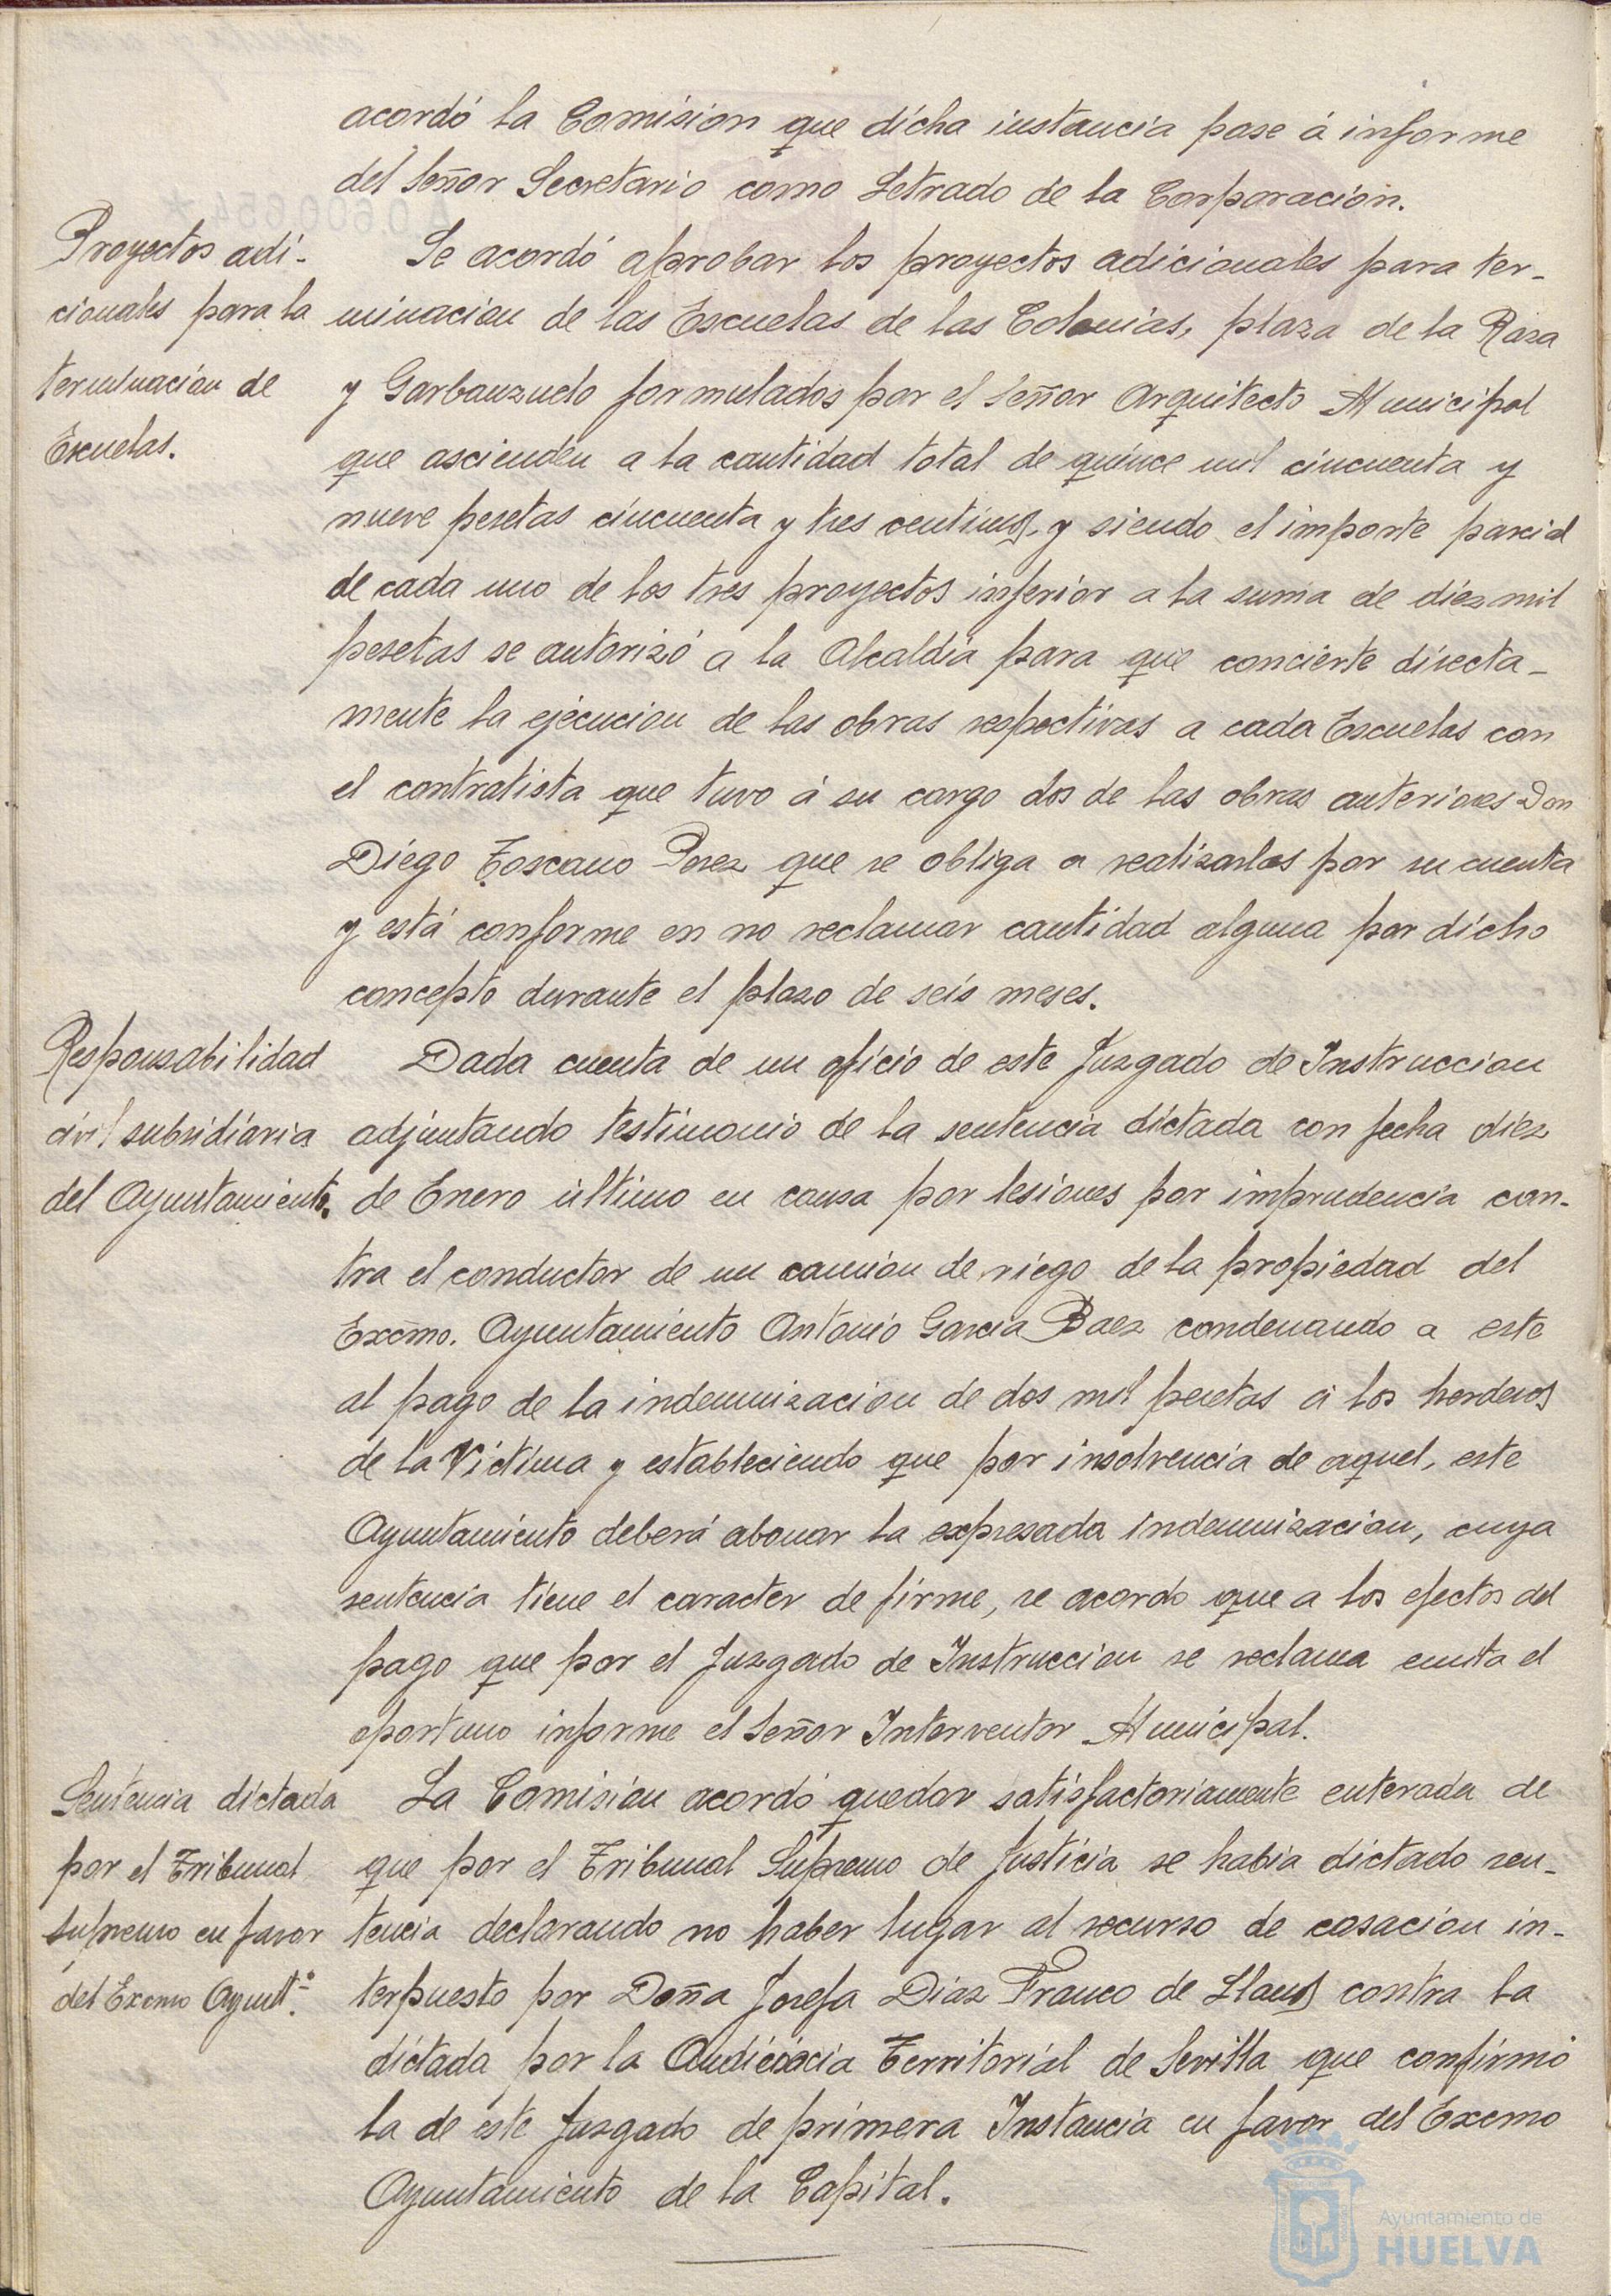 acordó la Comision que dicha instancia pase á informe
del Señor Secretario como Letrado de la Corporacion.
Proyectos adi-
cionales para la
terminacion de
Escuelas.
Se acordó aprobar los proyectos adicionales para ter-
minacion de las Escuelas de las Colonias, plaza de la Raza
y Garbanzuelo formulados por el Señor Arquitecto Municipal
que ascienden a la cantidad total de quince mil cincuenta y
nueve pesetas cincuenta y tres centimos y siendo el importe parcial
de cada uno de los tres proyectos inferior a la suma de diez mil
pesetas se autorizó a la Alcaldia para que concierte directa-
mente la ejecucion de las obras respectivas a cada Escuelas con
el contratista que tuvo á su cargo dos de las obras anteriores Don
Diego Toscano Perez que se obliga a realizarlas por su cuenta
y está conforme en no reclamar cantidad alguna por dicho
concepto durante el plazo de seis meses.
Responsabilidad
civil subsidiaria
del Ayuntamiento.
Dada cuenta de un oficio de este Juzgado de Instruccion
adjuntando testimonio de la sentencia dictada con fecha diez
de Enero último en causa por lesiones por imprudencia con-
tra el conductor de un camion de riego de la propiedad del
Excmo. Ayuntamiento Antonio Garcia Baez condenando a este
al pago de la indemnizacion de dos mil pesetas á los herderos
de la Victima y estableciendo que por insolvencia de aquel, este
Ayuntamiento deberá abonar la expresada indemnizacion, cuya
sentencia tiene el caracter de firme, se acordo que a los efectos del
pago que por el Juzgado de Instruccion se reclama emita el
oportuno informe el Señor Interventor Municipal.
Sentencia dictada
por el Tribunal
Supremo en favor
del Excmo Ayuntº.
La Comision acordó quedar satisfactoriamente enterada de
que por el Tribunal Supremo de Justicia se habia dictado sen-
tencia declarando no haber lugar al recurso de casacion in-
terpuesto por Doña Josefa Diaz Franco de Llanos contra la
dictada por la Audiencia Territorial de Sevilla que confirmó
la de este Juzgado de primera Instancia en favor del Excmo
Ayuntamiento de la Capital.
Ayuntamiento de
HUELVA